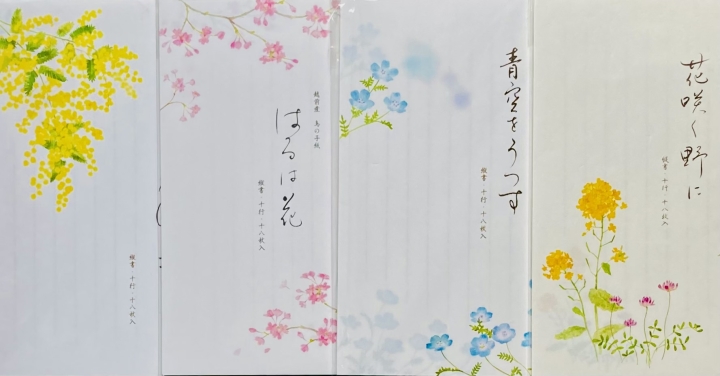 花咲く野に
縦書 十行・十八枚入
青空をうつす
縦書 十行・十八枚入
越前産 鳥の子紙
はるは花
縦書 十行・十八枚入
縦書 十行・十八枚入